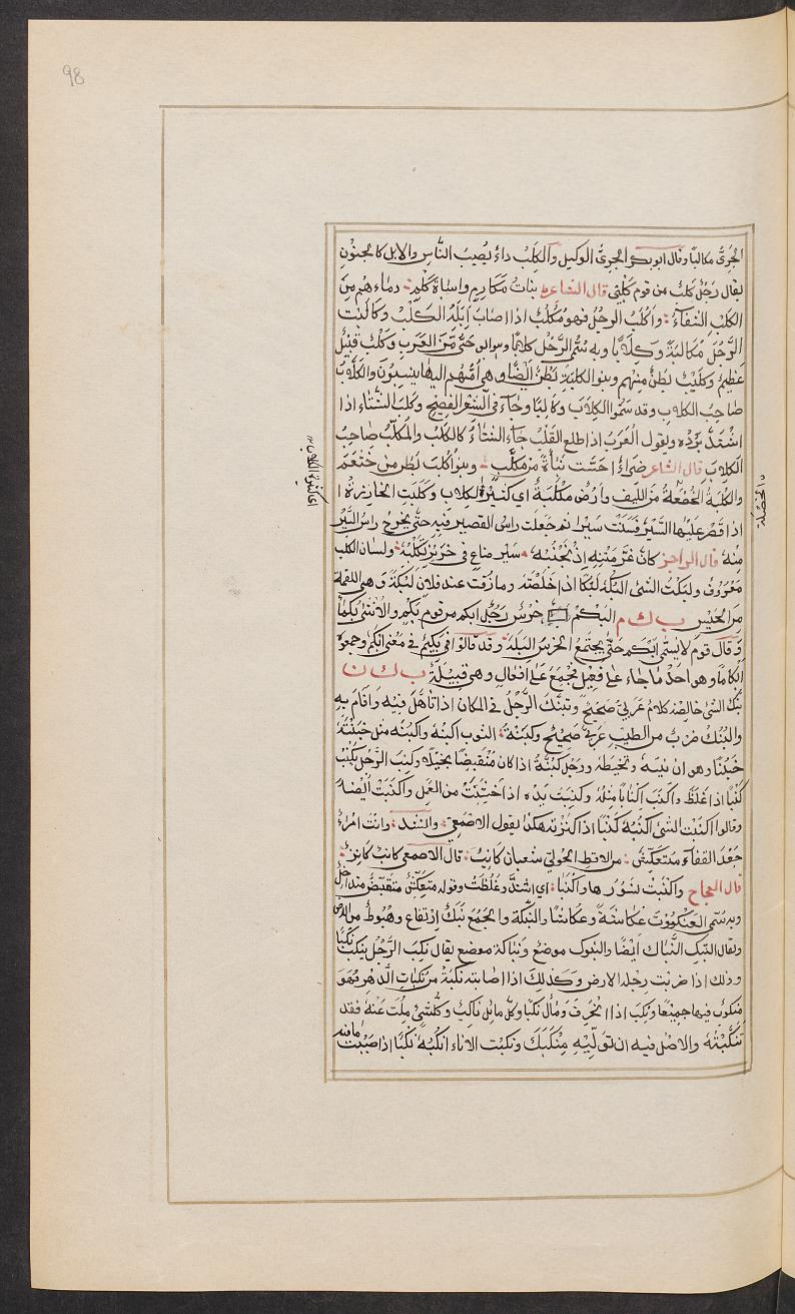 98
الجرىّ مكالبًا وقال ابو بكر الجرىّ الوكيل والكَلَب داءٌ يُصيبُ النّاس والابل كالجنون
يقال رَجُل كلبٌ من قوم كَلْبَى قال الشاعر بناتُ مكارمٍ واساةُ كَلمٍ ودماءهم مِنَ
الكلَبِ الشفآءُ واكلَبَ الرجُل فهو مُكلبٌ اذا اصابَ اِبلَهُ الكَلَبُ وكالبت
الرَّجُلَ مُكالبَةً وكِلَابًا وبه سُمّى الرَّجُل كلابًا وهو ابو حىّ مِنَ العَرَبِ وكَلْبٌ قبيلٌ
عَظيمٌ وكُلَيْبٌ بطنٌ منهم وبنو الكلبَةِ بَطنٌ ايضًا وهى اُمّهم اليها ينسبون والكلّابُ
صَاحبُ الكلاب وقد سَمّوا الكِلَابَ وكالبًا وجَاءَ فى الشعر الفصيح وكَلبَ الشتاء اذا
اشتَدَّ بَرْدُه ويقول العَرَبُ اذا طلع القَلْبُ جَاء الشتاءُ كالكلب والمكلّبُ صاحبُ
الكلابِ قال الشاعر ضِرَاءٌ احَسَّت نبأةً من مكلّبِ وبنو اكلبَ بَطن من خثعم
والكُلبَةُ الخصلةُ مِنَ الليف وارضٌ مكْلَبَةٌ اى كثيرةُ الكلاب وكَلَبَتِ الخارزةُ
اذا قَصُر عَليها السَّيرُ فثنت سيرًا ثم جعلت راسَ القصير فيه حتى يخرج راسُ السَّيْر
مِنهُ قال الراجز كانّ غَرَّ متنِهِ اذ نَجْنُبُهْ سَيرُ صَناعٍ فى خريزٍ تكلُبُهْ ولسان الكلب
مَعْرُوفٌ ولبكت الشئ البُكُه لَبْكًا اذا خلَطتَه وما ذقت عند فلان لَبَكَةً وهى اللقمة
من الحَيْسِ ب ك م البَكَمُ خَرَسٌ رَجُلٌ ابكم من قومٍ بُكْمٍ والانثى بكمَاءُ
وقال قوم لا يُسمّى ابكم حتى يجتمعَ الخرسُ البَلَه وقد قالوا فى بَكيم فى معنى ابكم وجمعوه
ابكامًا وهو احدُ ما جاء على فعيل فجُمعَ عَلَى افعالٍ وهى قبيلةٌ ب ك ن
بُنْكُ الشئ خالصُهُ كلامٌ عَربىّ صَحيحٌ وتبنّكَ الرَّجُلُ فى المكان اذا تأهّلَ فيه واقامَ به
والبُنْكُ ضربٌ من الطيب عربىّ صَحيحٌ وكبنةُ الثوب اكبنُهُ واكبُنُه مثل خبنتُهُ
خَبْنًا وهو ان تثنيَهُ وتخيطَهُ ورَجُل كُبُنّةٌ اذا كان مُنْقبضًا بخيلًا وكنبَ الرَّجُل يكنُبُ
كُنبًا اذا غلظَ واكنَبَ اِكنابًا مثلُهُ وكنِبَت يدُه اذا خشُنَتْ من العَمَل واكنَبَت ايضًا
وقالوا اكنبت الشئَ اكنُبُه كنْبًا اذا كنزته هكذا يقول الاصمعى وانشد وانتَ امْرُءٌ
جَعْدُ القفاء مُتعكّشٌ من الاقط الحولىّ شعبان كانبُ قال الاصمعى كانبٌ كانزٌ
قال العجاج واكنَبَت نُسُورُها واكنَبا اى اشتدّ وغلُظت وقوله مُتعكّشٌ متقبّضٌ متداخلٌ
وبه سُمّى العَنْكبُوتُ عُكاشةً وعكّاشًا والنَّبَكَةُ والجَمعُ نَبَكٌ اِرْتفاعٌ وهُبُوطٌ من الارض
ويقال النَّبَك النّباك ايضًا والنبوك موضعٌ ونباكةُ موضع يقال نكِبَ الرَّجُل ينكَبُ نَكْبًا
وذلك اذا ضربَت رِجلَه الارض وكذلكَ اذا اصابته نكبَةٌ من نكباتِ الدّهر فهوَ
منكوبٌ فيها جميعًا ونَكَبَ اذا انحرف ومال نكْبًا وكلّ مائل ناكبٌ وكلّ شئ مِلتَ عَنهُ فقد
تنكّبْتَهُ والاصل فيه ان تولّيَهِ مِنْكَبَكَ ونكبت الاناء انكُبُهُ نَكْبًا اذا صَبَبْتَ ما فيه
الخصلة